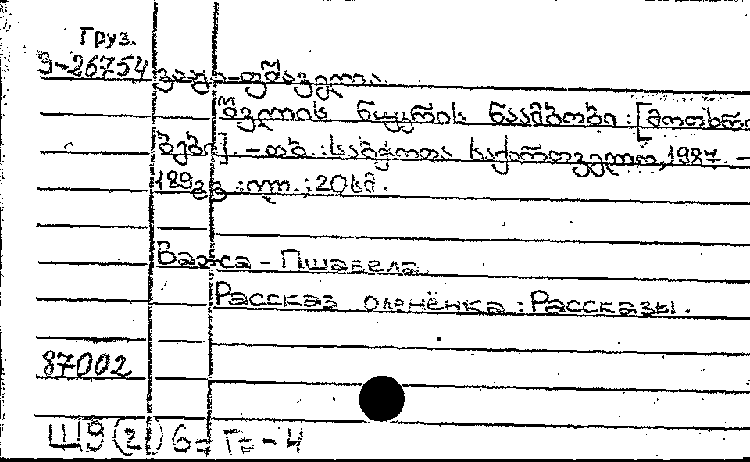 Груз.
9-26754 ვაჟა-ფშაველა.
შვლის ნუკრის ნაამბობი : [მოთხრო
ბები]. - თბ. : საბჭოთა საქართველო, 1987. -
189გვ. : ილ. ; 20სმ.
Важа - Пшавела.
Рассказ оленёнка : Рассказы.
87002
Ш9(2)6=Г=-4